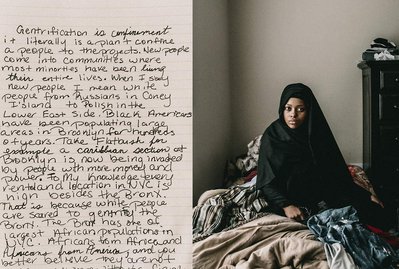 Gentrification is confinement
it literally is a plan to confine
a people to the projects. New people
come into communities where
most minorities have been living
their entire lives. When I say
new people I mean white
people from Russians in Coney
Island to Polish in the
Lower East Side. Black Americans
have been populating large
areas in Brooklyn for hundreds
of years. Take Flatbush for
example a caribbean section of
Brooklyn is now being invaded
by people with more money and
power. To my knowledge every
rental and location in NYC is
high besides the Bronx.
That is because white people
are scared to gentrify the
Bronx. The Bronx has one of
largest African populations in
NYC. Africans from Africa and
Africans from America and you
better believe they are not